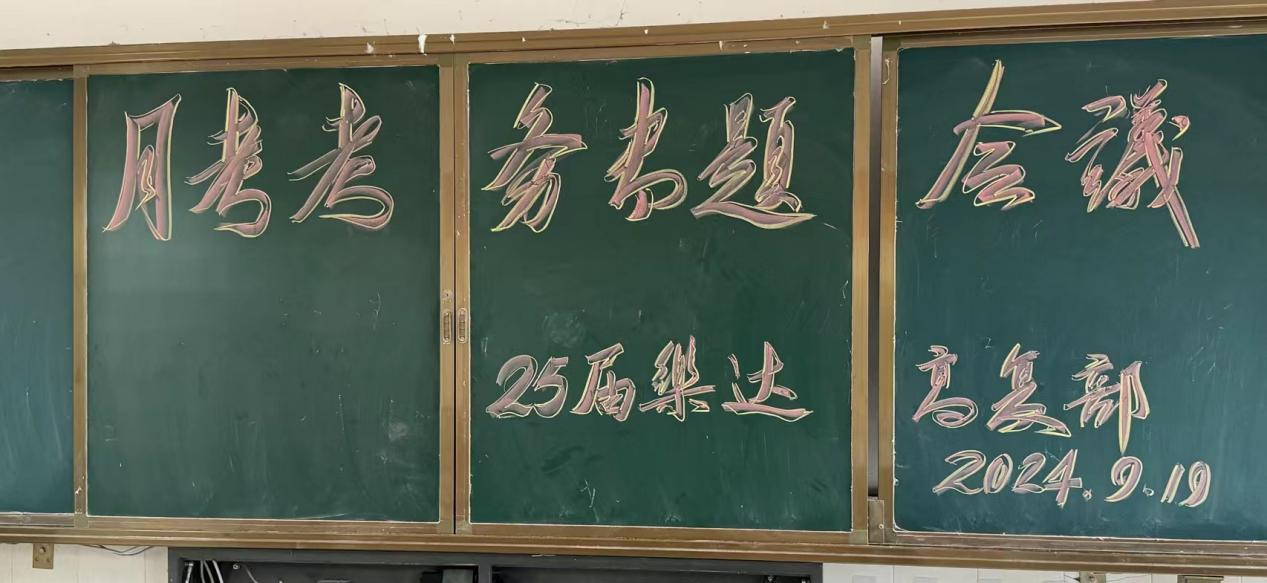 月考考务专题会議
25届樂达高复部
2024.9.19